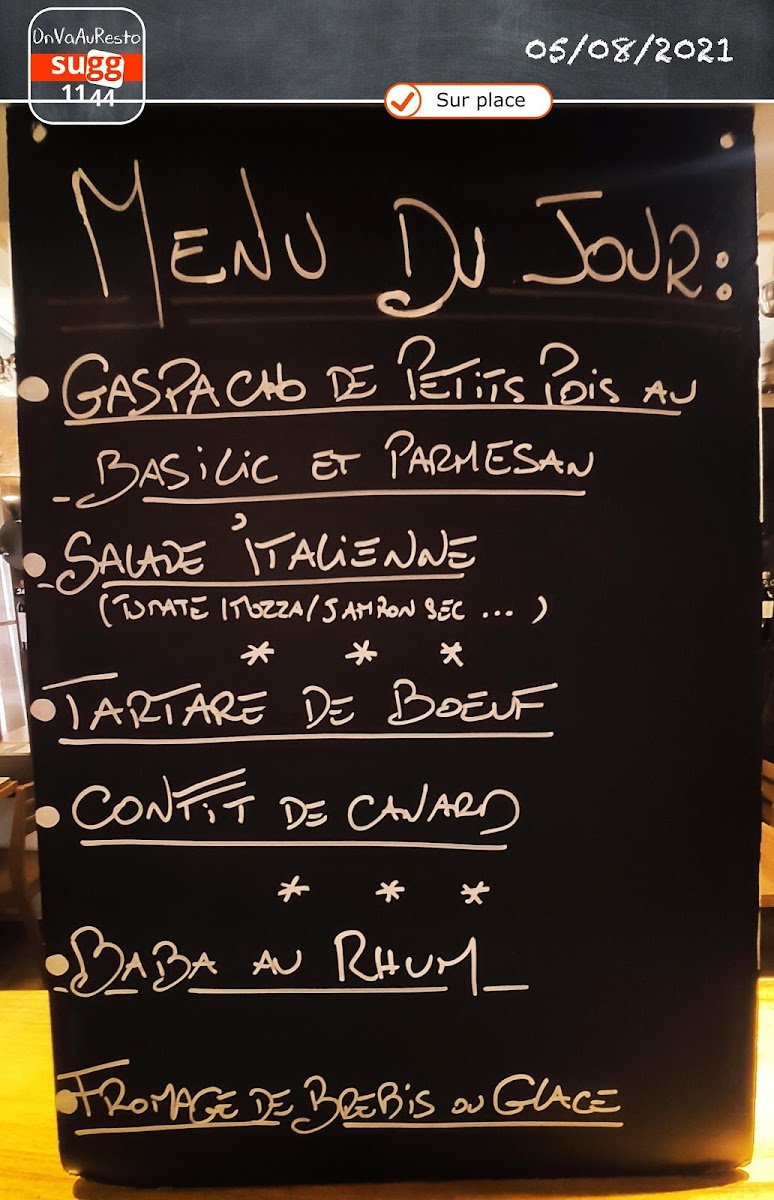 OnVaAuResto
sugg
1144
05/08/2021
Sur place
MENU DU JOUR:
GASPACHO DE PETITS POIS AU
BASILIC ET PARMESAN
SALADE 'ITALIENNE
(TOMATE / MOZZA/JAMBON SEC ... )
* * *
TARTARE DE BOEUF
CONFIT DE CANARD
* * *
BABA AU RHUM
FROMAGE DE BREBIS OU GLACE